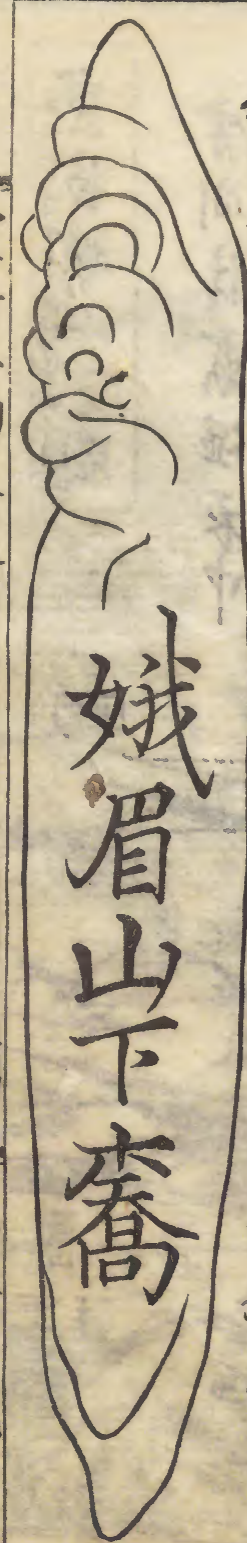 娥眉山下橋